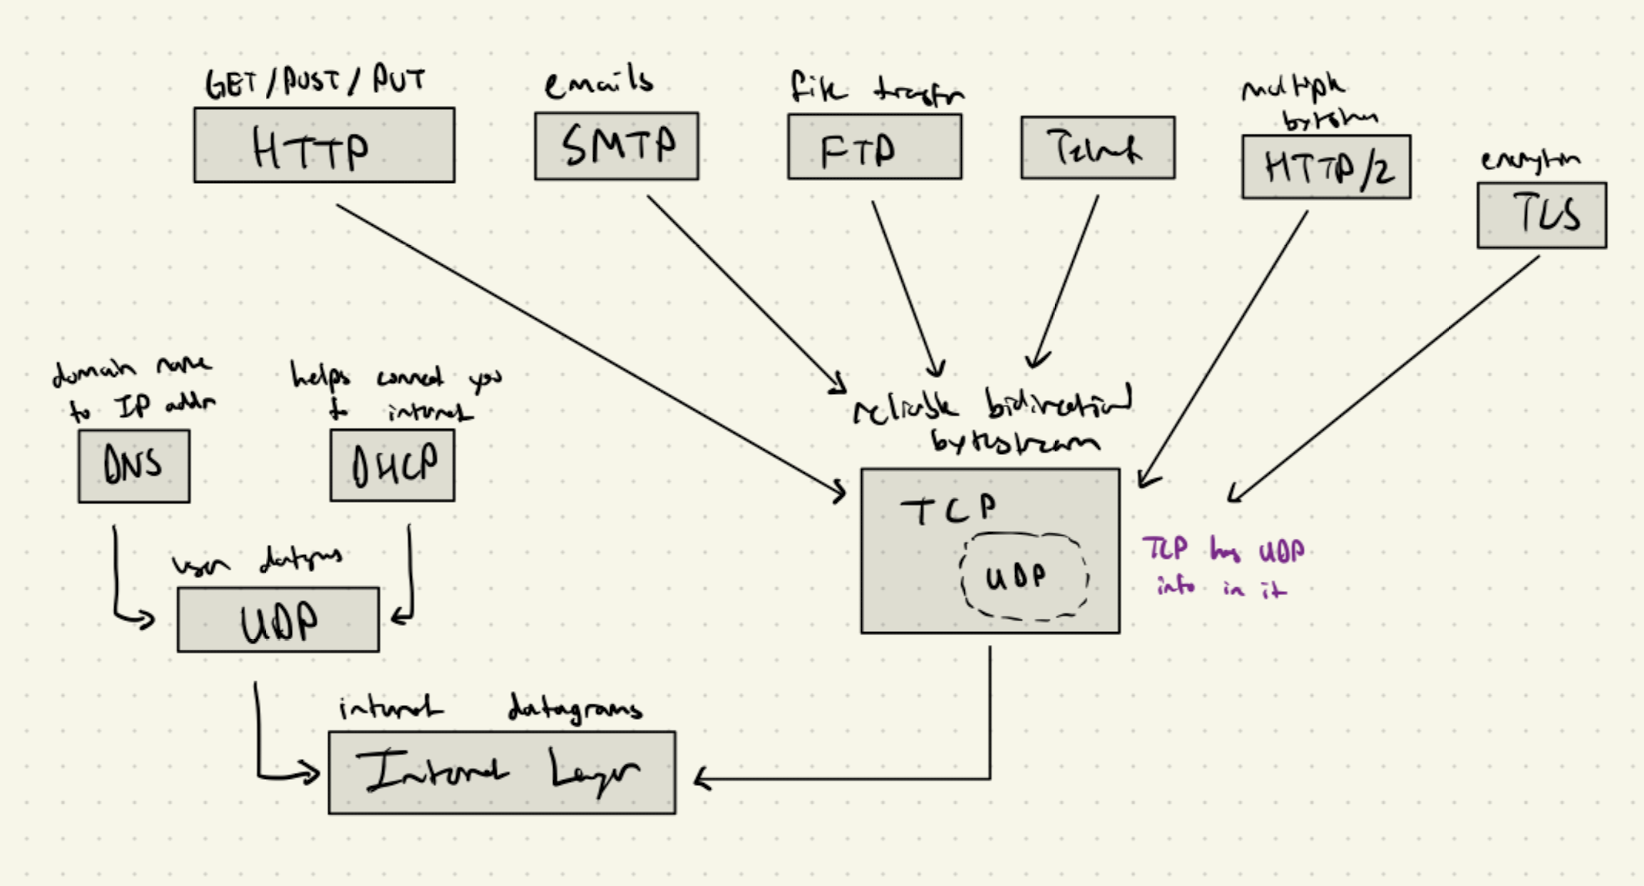 GET/POST/PUT
HTTP
emails
SMTP
file transfer
FTP
Telnet
multiple
bytestreams
HTTP/2
encryption
TLS
domain name
to IP addr
DNS
helps connect you
to internet
DHCP
user datagrams
UDP
reliable bidirectional
bytestream
TCP
UDP
TCP has UDP
info in it
internet datagrams
Internet Layer